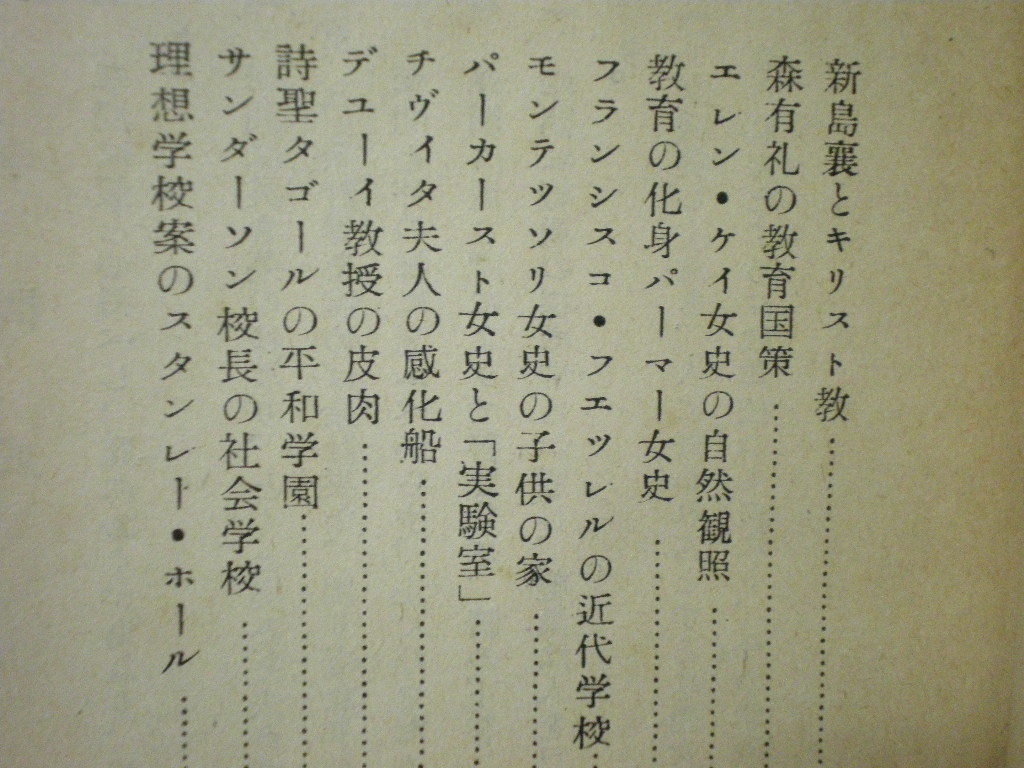 新島襄とキリスト教
森有礼の教育国策
エレン・ケイ女史の自然観照
教育の化身パーマー女史
フランシスコ・フエツレルの近代学校
モンテツソリ女史の子供の家
パーカースト女史と「実験室」
チヴイタ夫人の感化船
デユーイ教授の皮肉
詩聖タゴールの平和学園
サンダーソン校長の社会学校
理想学校案のスタンレー・ホール